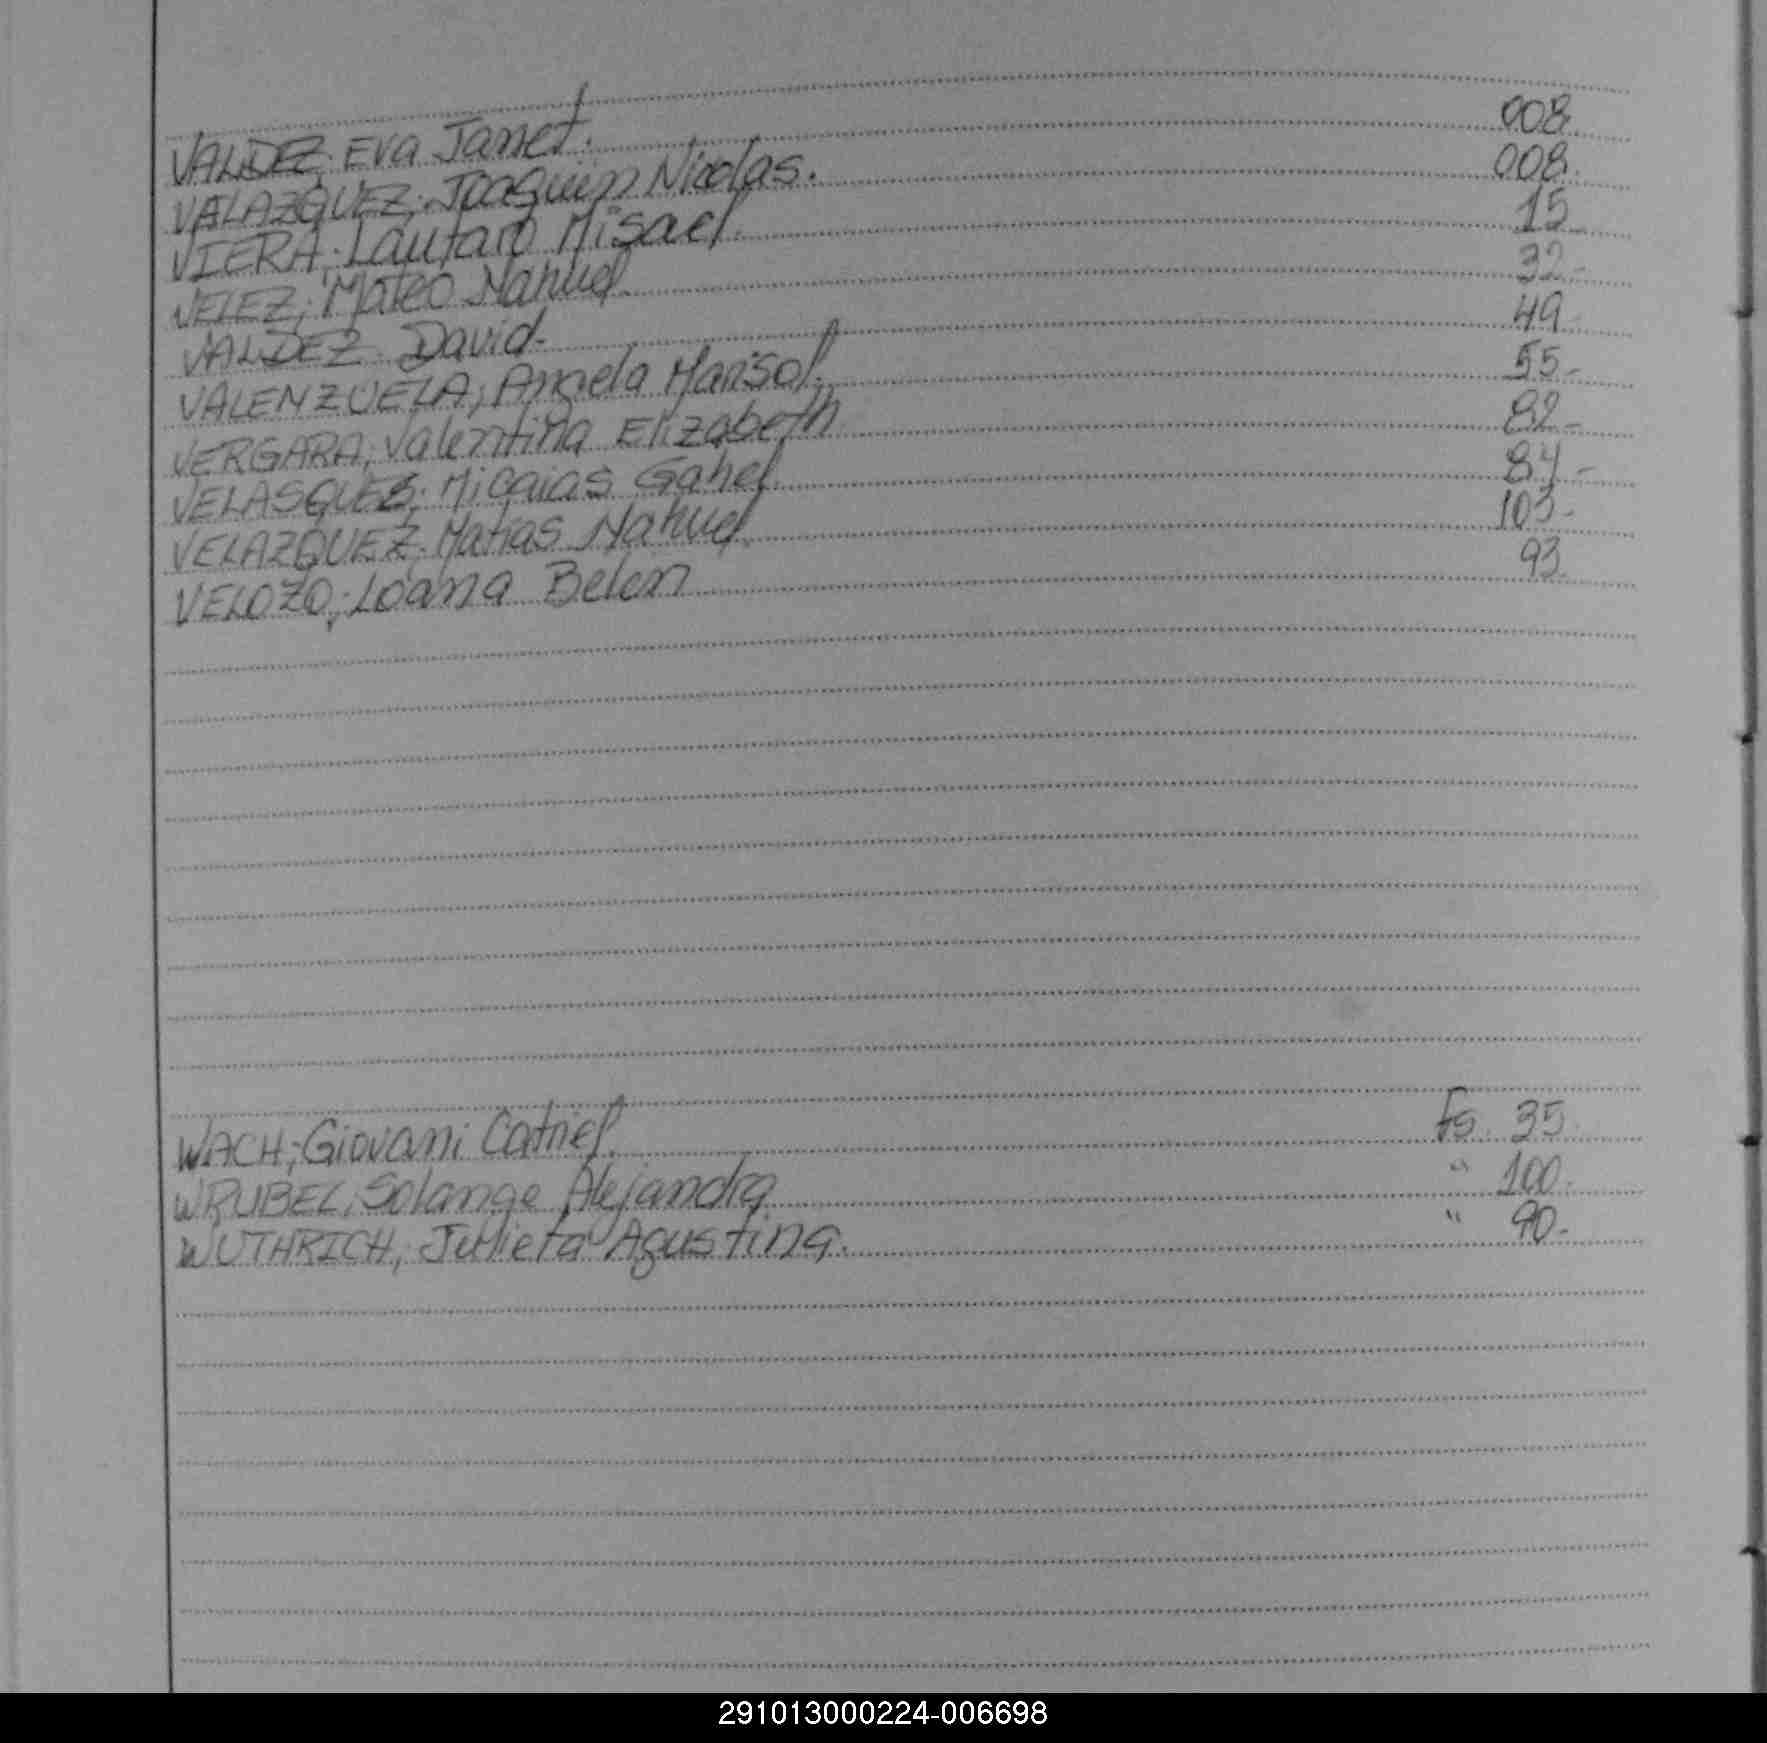 VALDEZ; Eva Janet. 008.
VELAZQUEZ; Joaquin Nicolas. 008.
VIERA; Lautaro Misael. 15
VELEZ; Mateo Nahuel 32-
VALDEZ David- 49-
VALENZUELA; Angela Marisol. 55-
VERGARA; Valentina Elizabeth 82-
VELASQUES; Micaias Gahel 84-
VELAZQUEZ; Matias Nahuel. 103-
VELOZO; Loana Belen 93.
WACH; Giovani Catriel. Fs. 35.
WRUBEL; Solange Alejandra " 100.
WUTHRICH; Julieta Agustina. " 90-
291013000224-006698